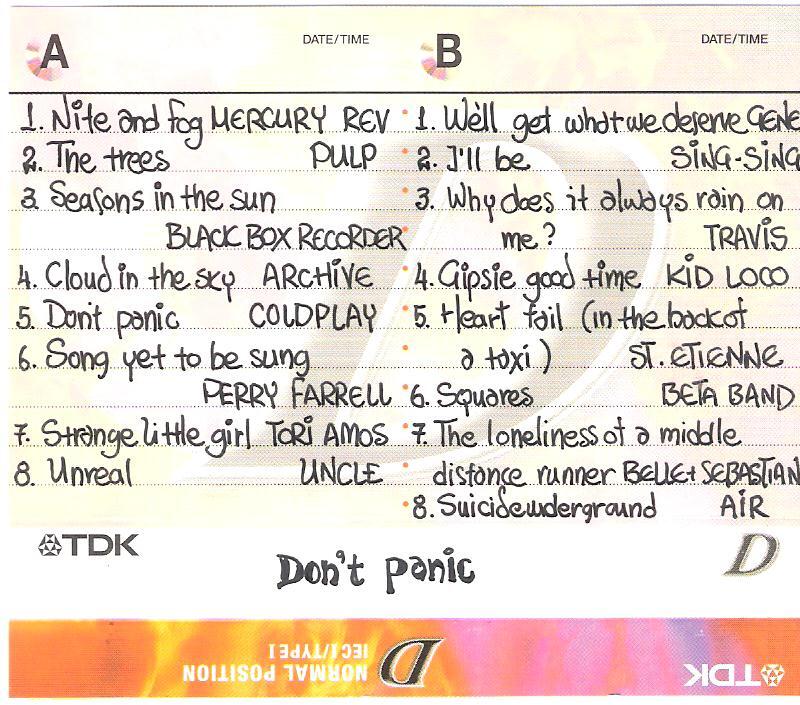 A DATE/TIME
1. Nite and fog MERCURY REV
2. The trees PULP
3. Seasons in the sun
BLACK BOX RECORDER
4. Cloud in the sky ARCHIVE
5. Don't panic COLDPLAY
6. Song yet to be sung
PERRY FARRELL
7. Strange little girl TORI AMOS
8. Unreal UNCLE
B DATE/TIME
1. We'll get what we deserve GENE
2. I'll be SING-SING
3. Why does it always rain on
me? TRAVIS
4. Gipsie good time KID LOCO
5. Heart fail (in the back of
a taxi) ST. ETIENNE
6. Squares BETA BAND
7. The loneliness of a middle
distance runner BELLE + SEBASTIAN
8. Suicide underground AIR
TDK
Don't panic
D
NORMAL POSITION
IEC I/TYPE I
D
TDK